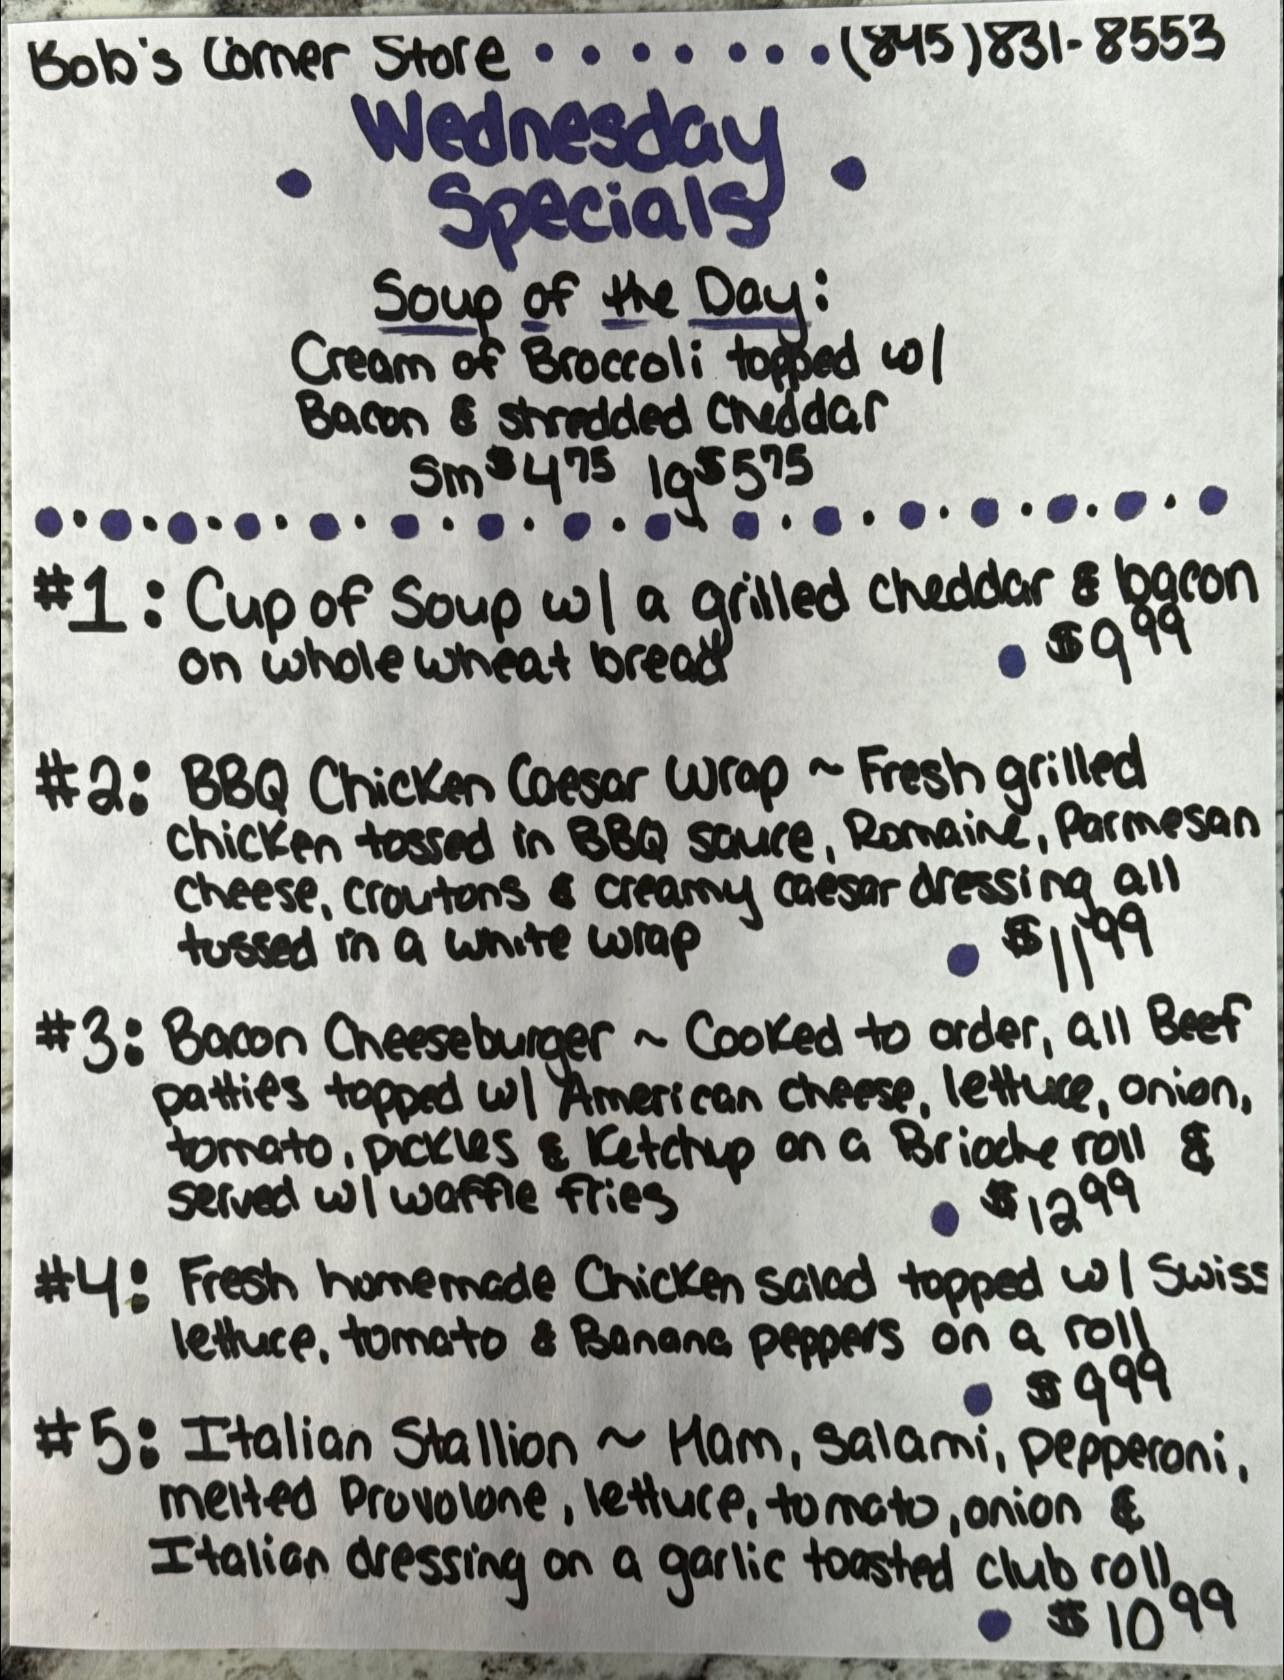 Bob's Corner Store • • • • • • • (845)831-8553
Wednesday
• Specials •
Soup of the Day:
Cream of Broccoli topped w/
Bacon & shredded Cheddar
Sm $4.75 lg $5.75
#1: Cup of Soup w/ a grilled cheddar & bacon
on whole wheat bread • $9.99
#2: BBQ Chicken Caesar Wrap ~ Fresh grilled
chicken tossed in BBQ sauce, Romaine, Parmesan
cheese, croutons & creamy caesar dressing all
tossed in a white wrap • $11.99
#3: Bacon Cheeseburger ~ Cooked to order, all Beef
patties topped w/ American cheese, lettuce, onion,
tomato, pickles & Ketchup on a Brioche roll &
served w/ waffle fries • $12.99
#4: Fresh homemade Chicken salad topped w/ Swiss
lettuce, tomato & Banana peppers on a roll
• $9.99
#5: Italian Stallion ~ Ham, Salami, pepperoni,
melted Provolone, lettuce, tomato, onion &
Italian dressing on a garlic toasted club roll
• $10.99